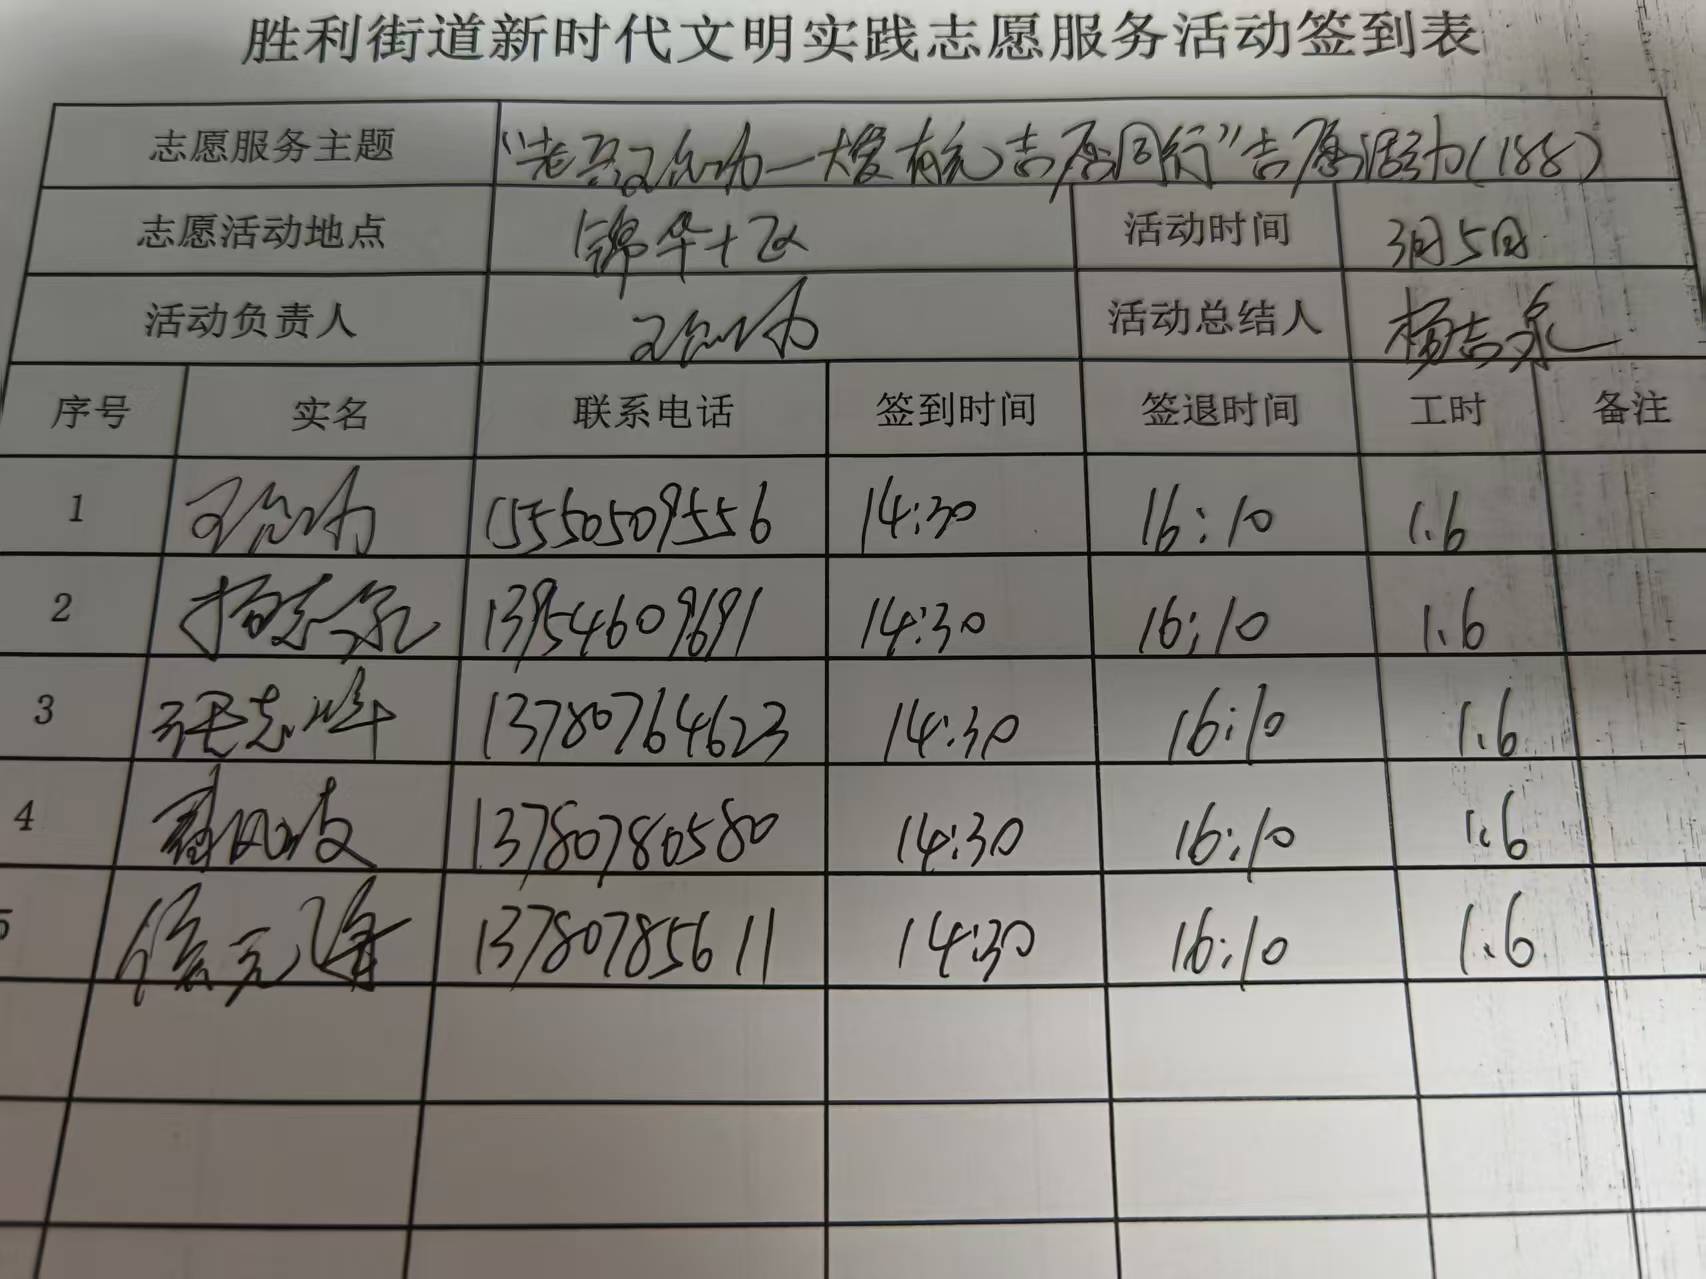 胜利街道新时代文明实践志愿服务活动签到表
志愿服务主题 大爱有 志愿同行”志愿活动(188)
志愿活动地点 锦华十区 活动时间 3月5日
活动负责人 活动总结人 杨志泉
序号 实名 联系电话 签到时间 签退时间 工时 备注
1 15550509556 14:30 16:10 1.6
2 杨志泉 13954609691 14:30 16:10 1.6
3 张志峰 13780764623 14:30 16:10 1.6
4 13780780580 14:30 16:10 1.6
5 13780785611 14:30 16:10 1.6